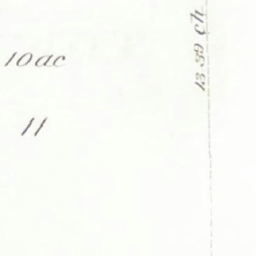 10 ac
11
13 39 ch